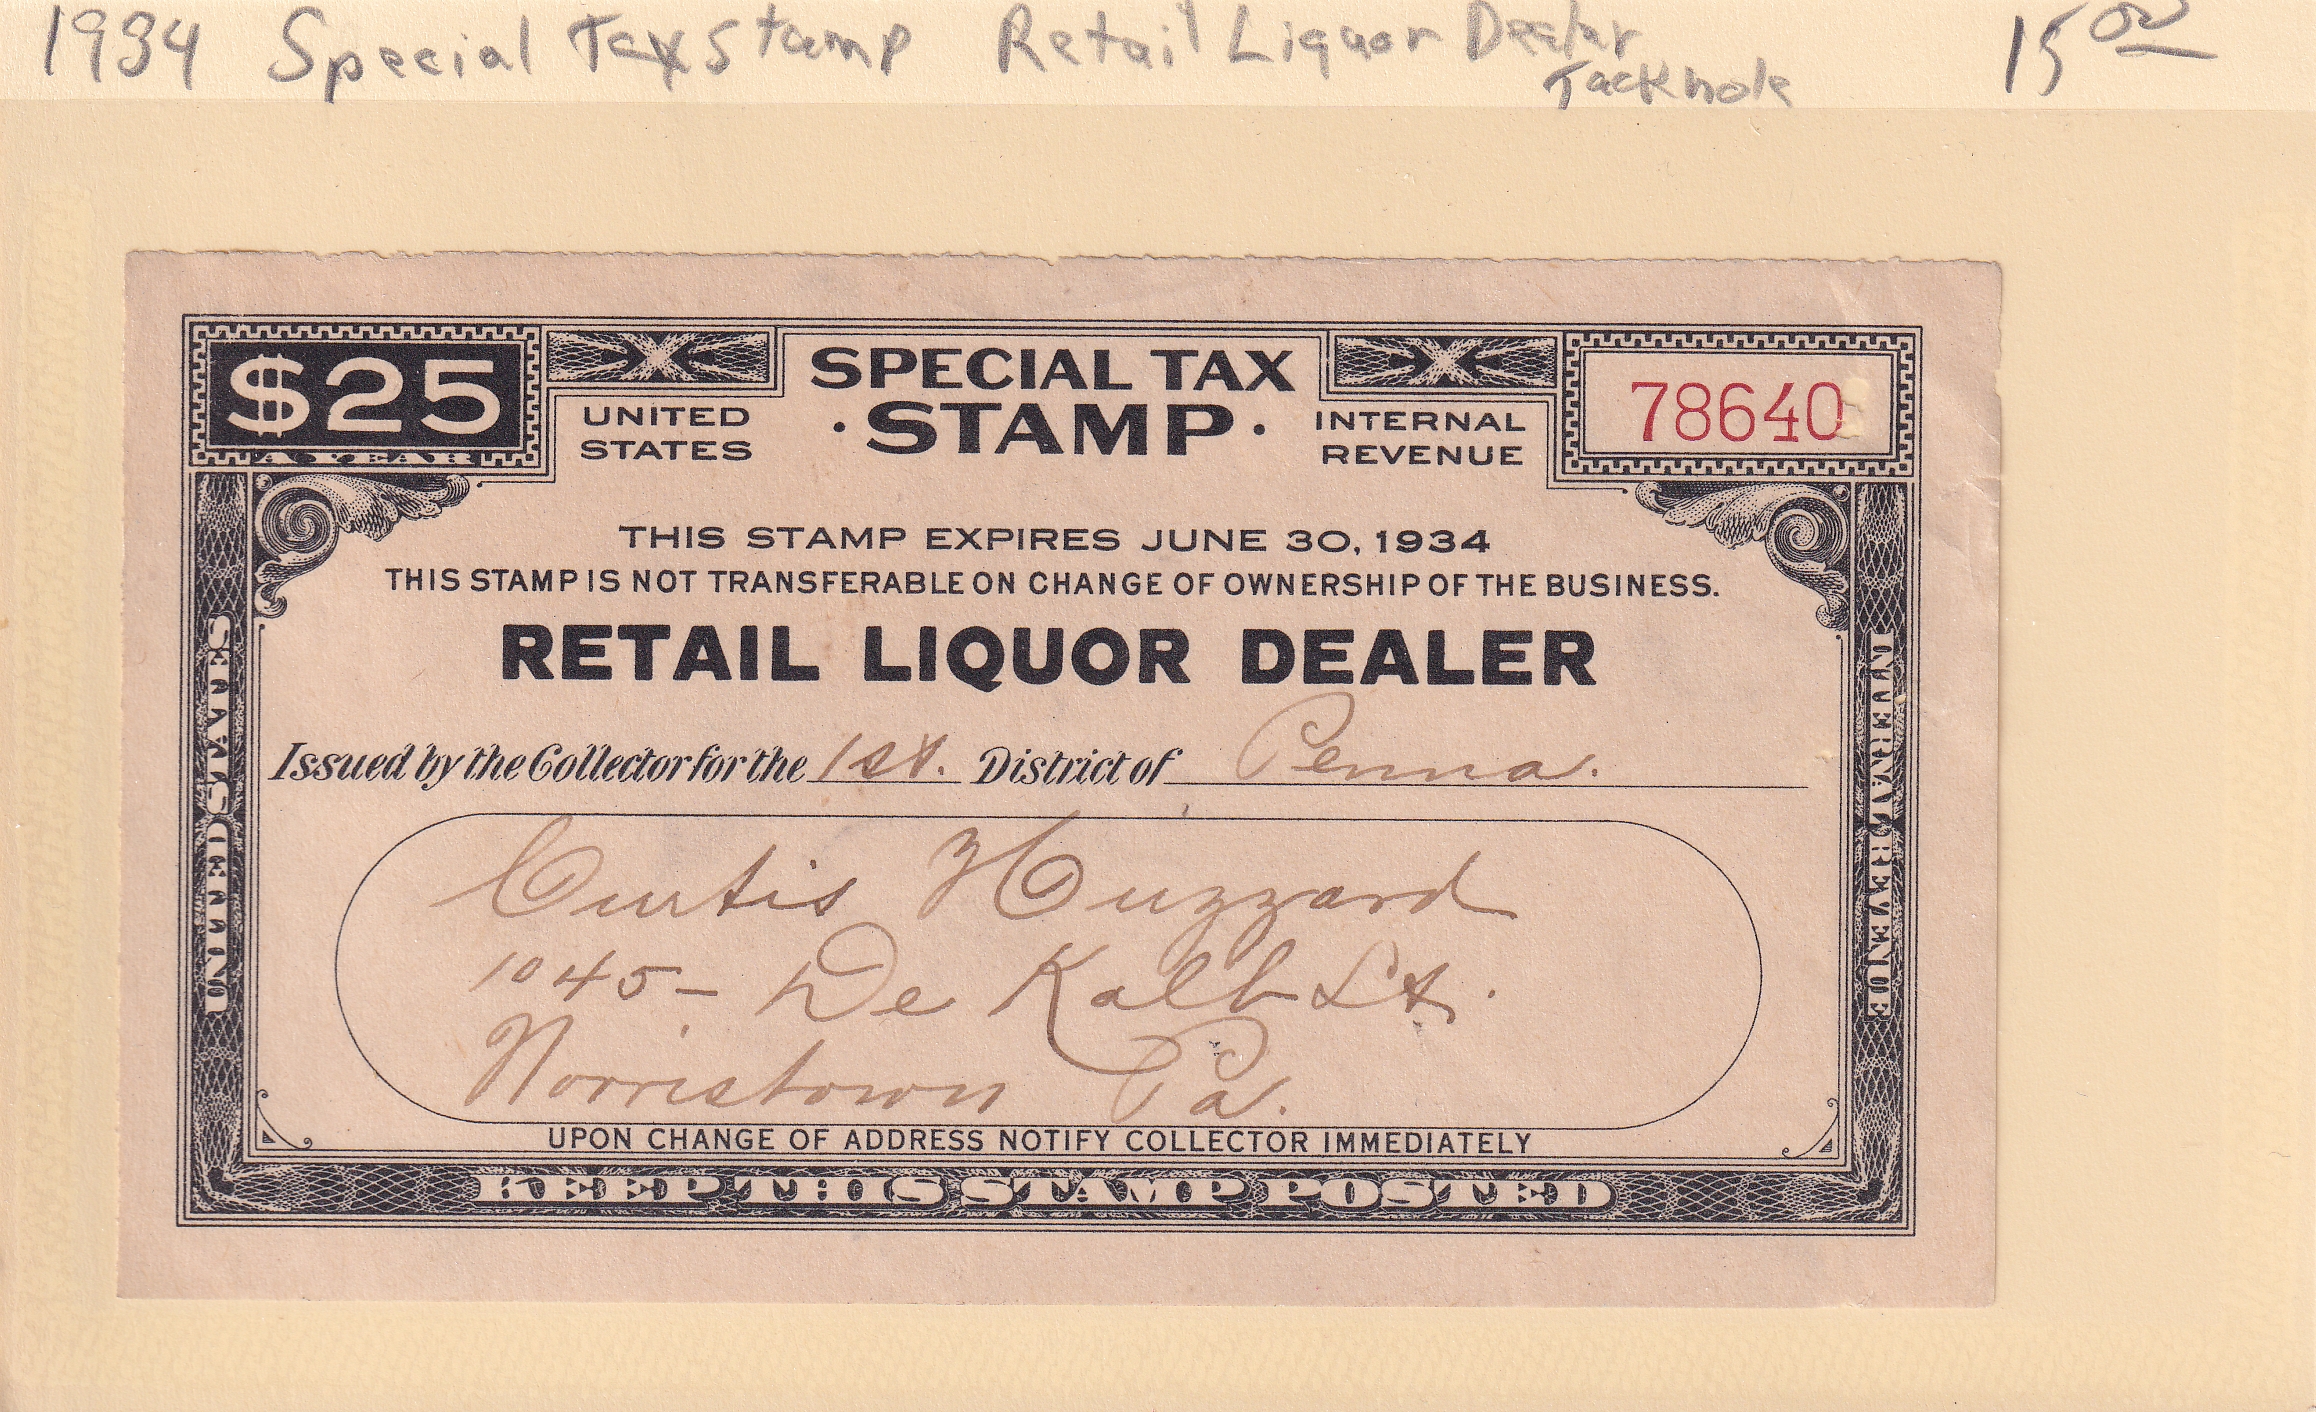 1934 Special Tax Stamp Retail Liquor Dealer 15 00
Tackhole
$25
A YEAR
UNITED
STATES
SPECIAL TAX
· STAMP ·
INTERNAL
REVENUE
78640
THIS STAMP EXPIRES JUNE 30, 1934
THIS STAMP IS NOT TRANSFERABLE ON CHANGE OF OWNERSHIP OF THE BUSINESS.
RETAIL LIQUOR DEALER
Issued by the Collector for the 1st. District of Penna.
Curtis Huzzard
1045 - De Kalb St.
Norristown Pa.
UPON CHANGE OF ADDRESS NOTIFY COLLECTOR IMMEDIATELY
UNITED STATES
INTERNAL REVENUE
KEEP THIS STAMP POSTED